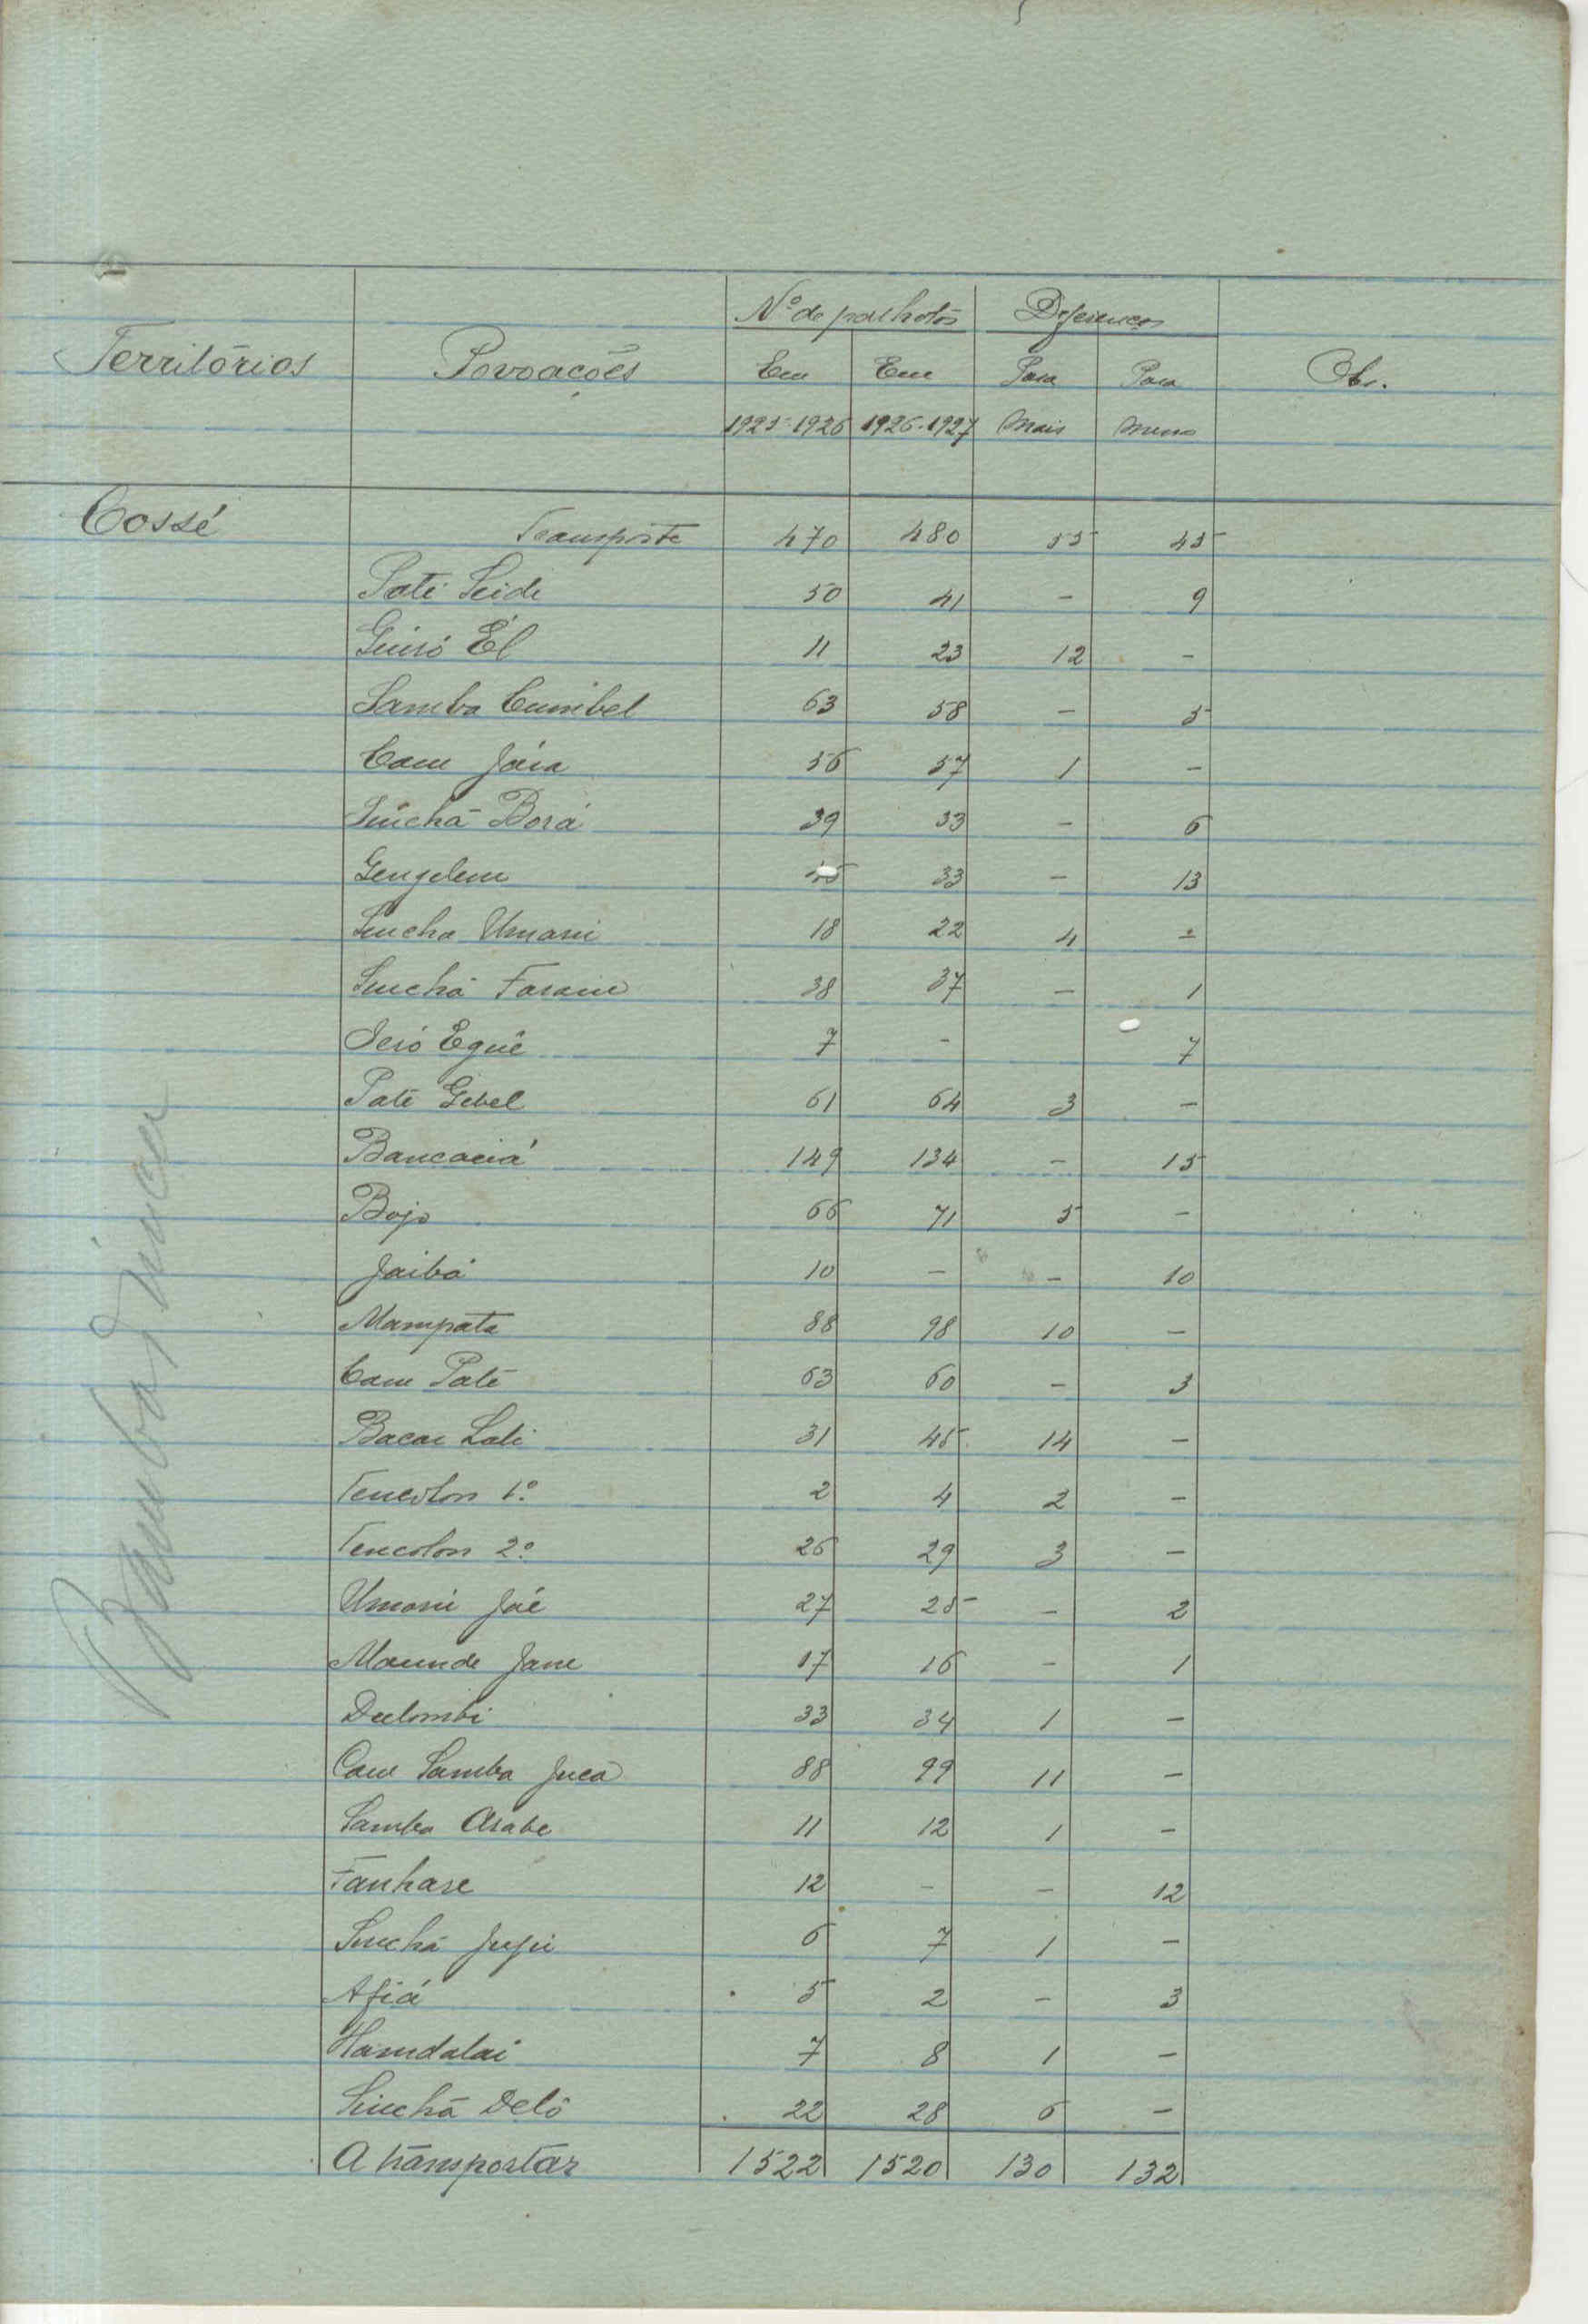 Territórios Povoações Nº de palhotas Diferenças Obs.
Em Em Para Para
1925-1926 1926-1927 mais menos
Cossé Transporte 470 480 55 45
Paté Seidi 50 41 - 9
Guiró Él 11 23 12 -
Samba Cumbel 63 58 - 5
Cam Jáia 56 57 1 -
Sinchã Borá 39 33 - 6
33 - 13
Sincha Umaru 18 22 4 -
Sinchã 38 37 - 1
7 - 7
Paté Gebel 61 64 3 -
149 134 - 15
Bojo 66 71 5 -
Jaibá 10 - - 10
Mampata 88 98 10 -
Cam Paté 63 60 - 3
Bacar Lali 31 45 14 -
Tencolon 1º 2 4 2 -
Tencolon 2º 26 29 3 -
27 25 - 2
17 16 - 1
Dulombi 33 34 1 -
Cam Samba Jucà 88 99 11 -
Samba Arabe 11 12 1 -
Fanhase 12 - - 12
Sinchã 6 7 1 -
Afiá 5 2 - 3
Hamdalai 7 8 1 -
Sinchã Deló 22 28 6 -
A transportar 1522 1520 130 132
Bambadinca